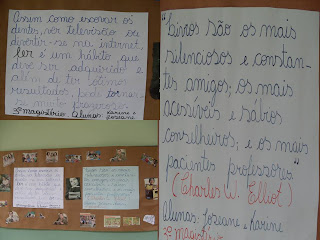 Assim como escovar os
dentes, ver televisão ou
divertir-se na internet,
ler é um hábito que
deve ser adquirido e
além de ter ótimos
resultados, pode tornar-
se muito prazeroso.
3º magistério Alunas: Karine e
Joseane
"Livros são os mais
silenciosos e constan-
tes amigos; os mais
acessíveis e sábios
conselheiros; e os mais
pacientes professores"
(Charles W. Elliot)
Alunas: Joseane e Karine
3º magistério